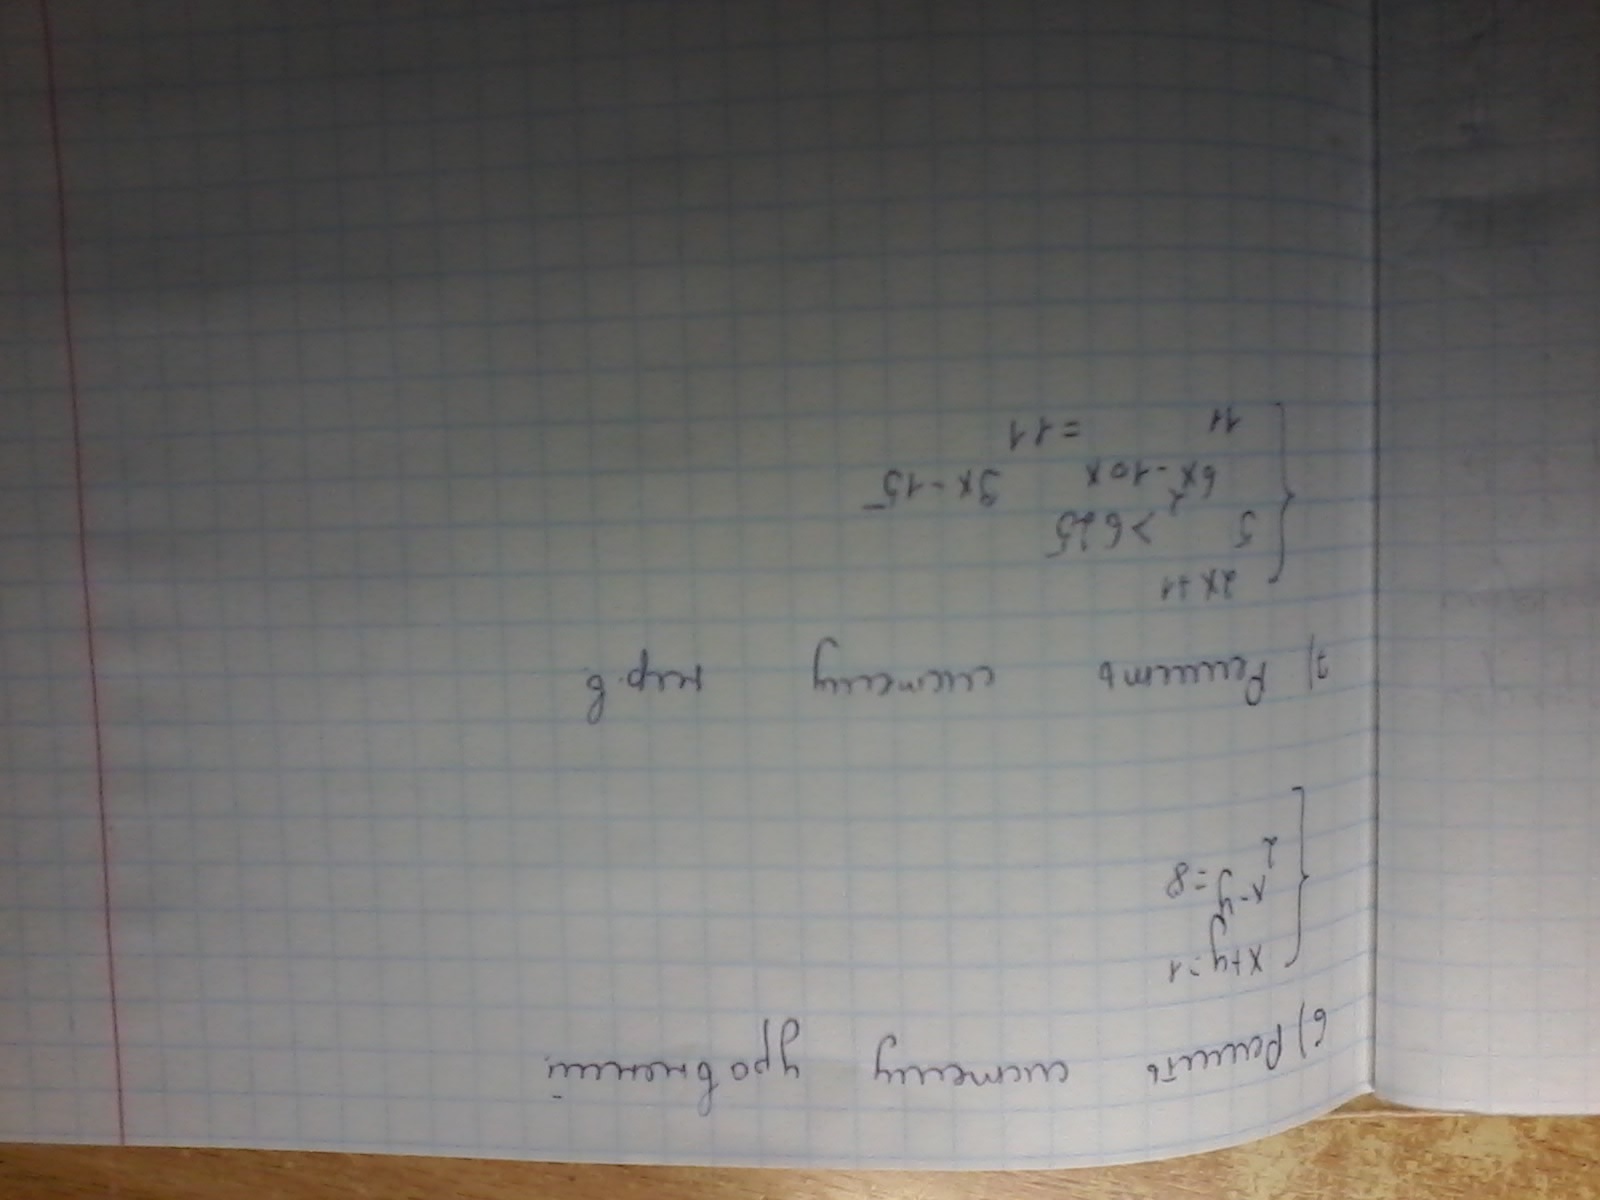 6) Решить систему уровнений
x+y=1
x-y
2 =8
7) Решить систему нер-в
2x+1
5 >625
6x²-10x 9x-15
11 =11